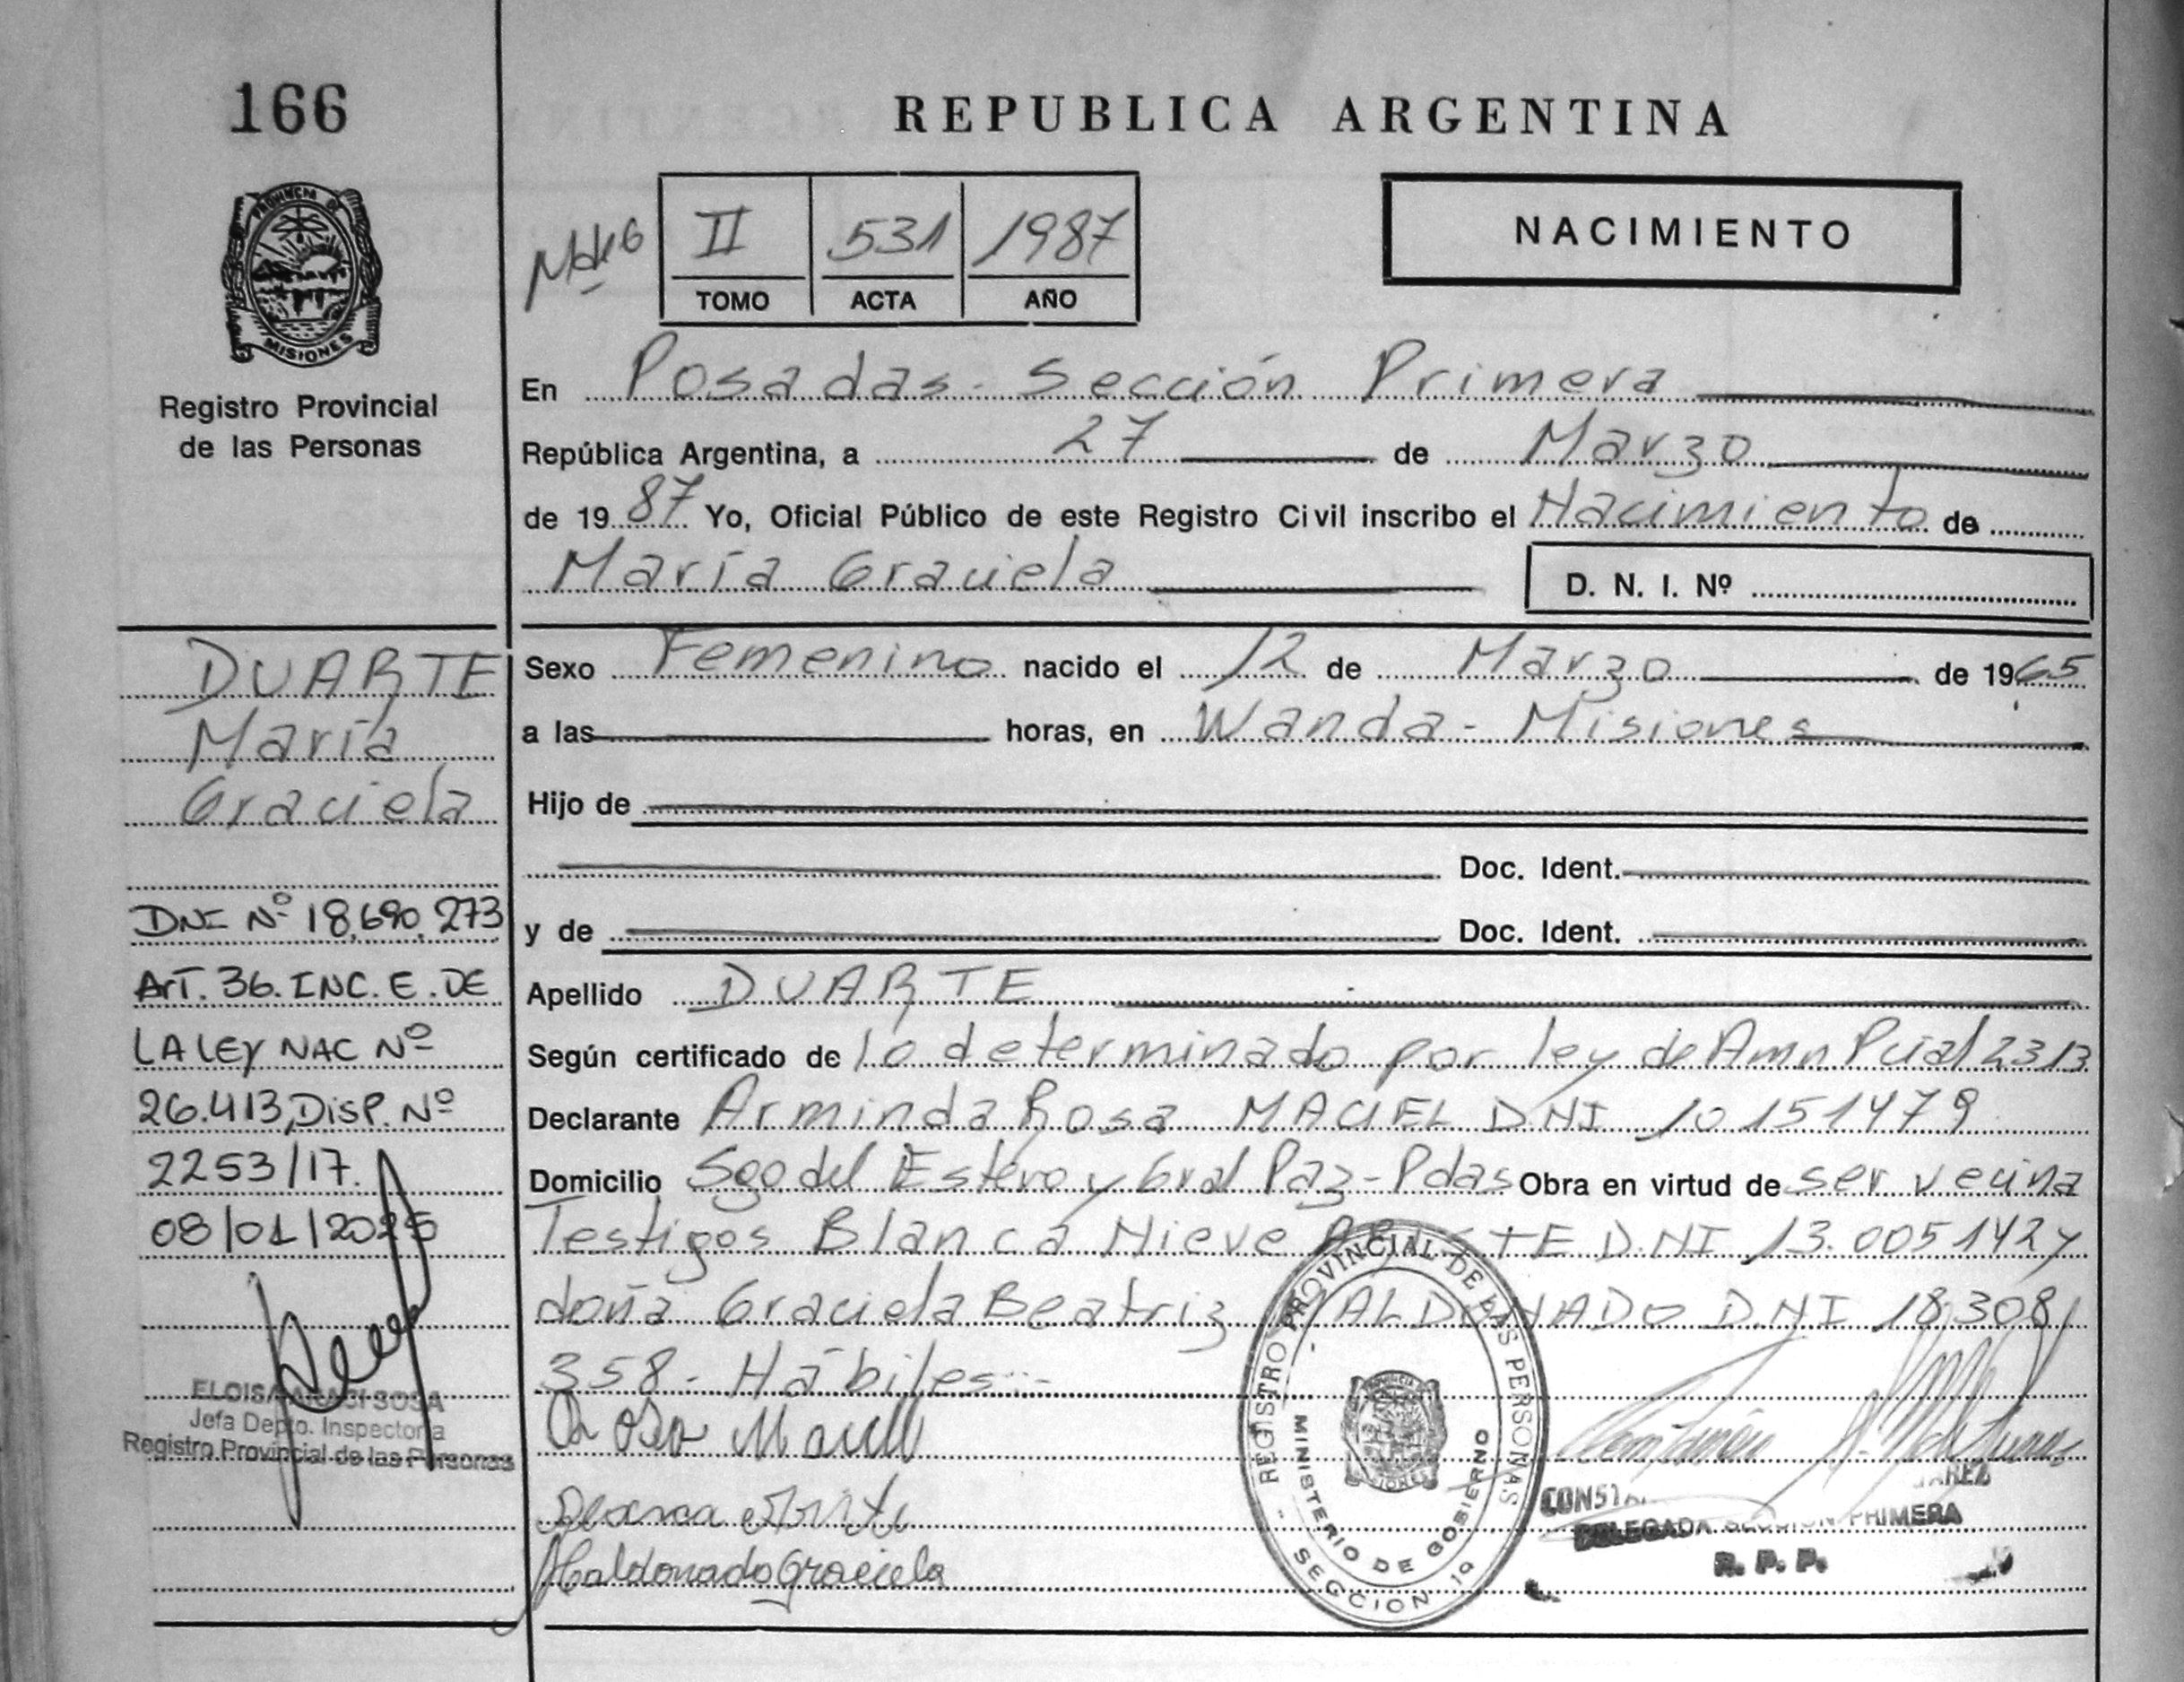 166
REPUBLICA ARGENTINA
PROVINCIA DE
MISIONES
Registro Provincial
de las Personas
II 531 1987
TOMO ACTA AÑO
NACIMIENTO
En Posadas - Sección Primera
República Argentina, a 27 de Marzo
de 1987 Yo, Oficial Público de este Registro Civil inscribo el Nacimiento de
María Graciela
D. N. I. Nº
DUARTE
María
Graciela
DNI Nº 18,690,273
ART. 36. INC. E. DE
LA LEY NAC Nº
26.413, DISP. Nº
2253/17.
08/01/2025
Jefa Depto. Inspectoria
Registro Provincial de las Personas
Sexo Femenino nacido el 12 de Marzo de 1965
a las horas, en Wanda - Misiones
Hijo de
Doc. Ident.
y de Doc. Ident.
Apellido DUARTE
Según certificado de lo determinado por ley de Amn Pcial 2313
Declarante Arminda Rosa MACIEL D.NI 10151479
Domicilio Sgo del Estero y Gral Paz - Pdas Obra en virtud de ser vecina
Testigos Blanca Nieve D.NI 13.005142 y
doña Graciela Beatriz MALDONADO D.NI 18,308,
358 - Hábiles
Rosa Maciel
Maldonado Graciela
REGISTRO PROVINCIAL DE LAS PERSONAS
MINISTERIO DE GOBIERNO
SECCION 1ª
DELEGADA SECCION PRIMERA
R. P. P.